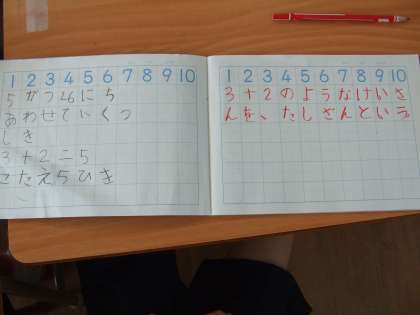 1 2 3 4 5 6 7 8 9 10
5がつ26にち
あわせていくつ
しき
3+2=5
こたえ5ひき
1 2 3 4 5 6 7 8 9 10
3+2のようなけいさ
んを、たしざんという